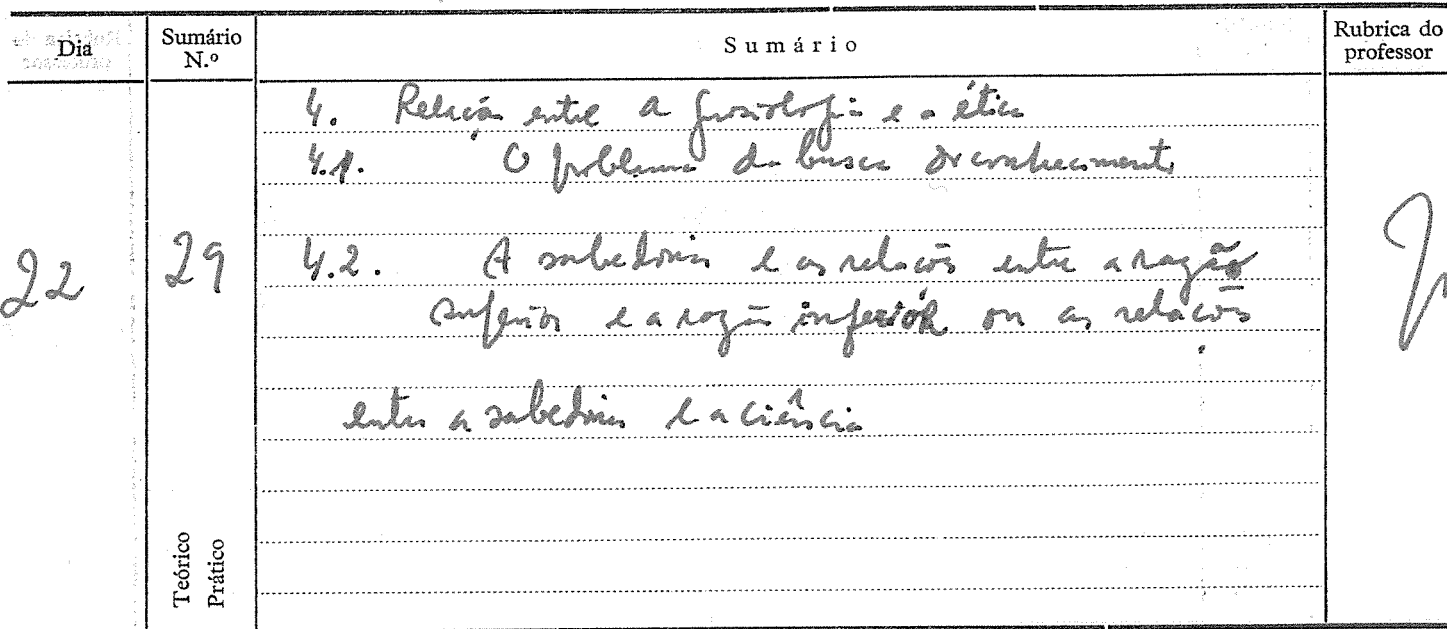 Dia
Sumário N.º
Sumário
Rubrica do professor
22
29
4. Relação entre a gnosiologia e a ética
4.1. O problema da busca do conhecimento
4.2. A sabedoria e as relações entre a razão
superior e a razão inferior ou as relações
entre a sabedoria e a ciência
Teórico
Prático